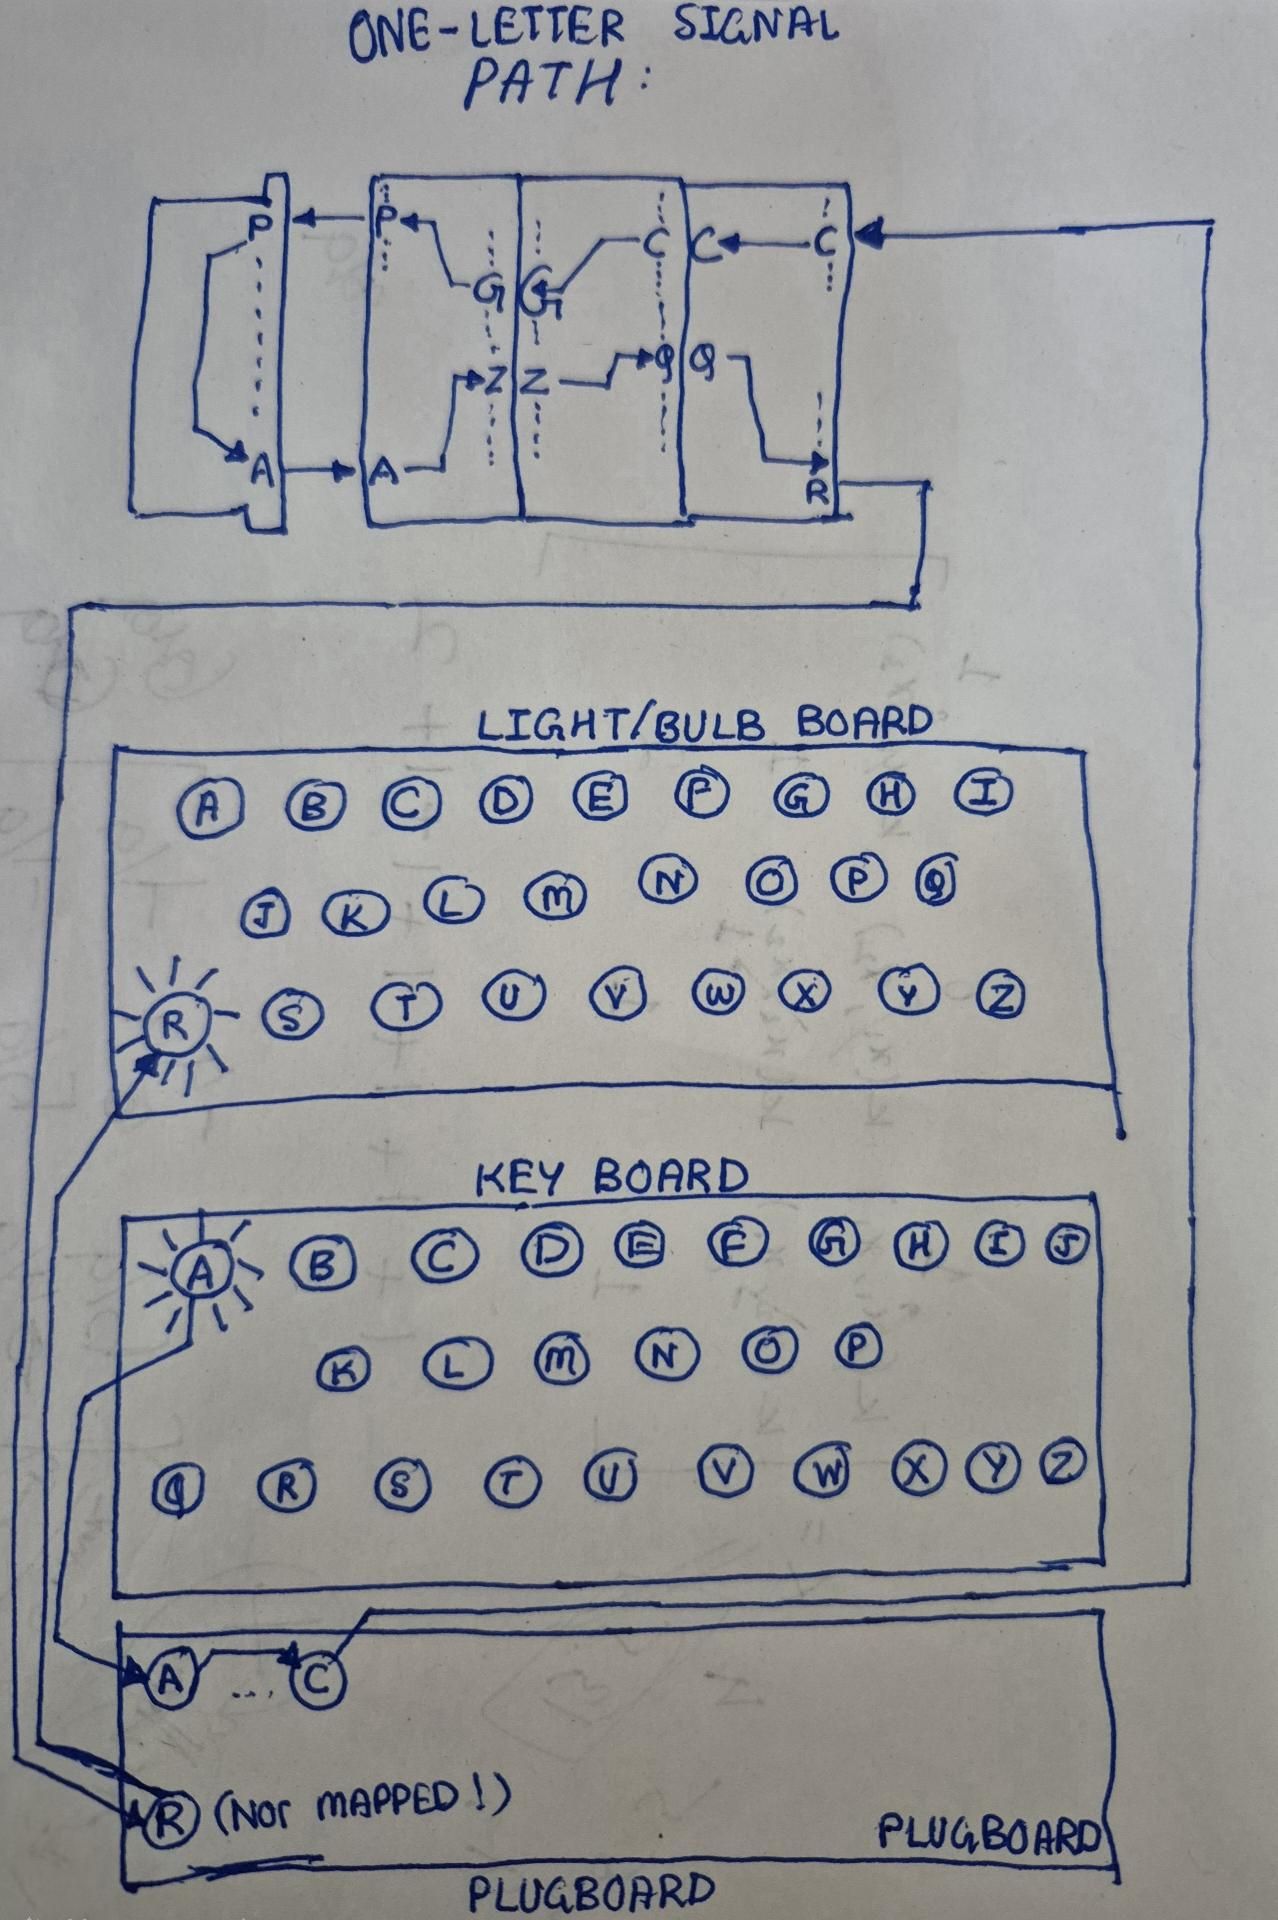 ONE-LETTER SIGNAL
PATH:
P P C C C
G G
Q Q
Z Z
A A
R
LIGHT/BULB BOARD
A B C D E F G H I
J K L M N O P Q
R S T U V W X Y Z
KEY BOARD
A B C D E F G H I J
K L M N O P
Q R S T U V W X Y Z
A ... C
R (NOT MAPPED!)
PLUGBOARD
PLUGBOARD